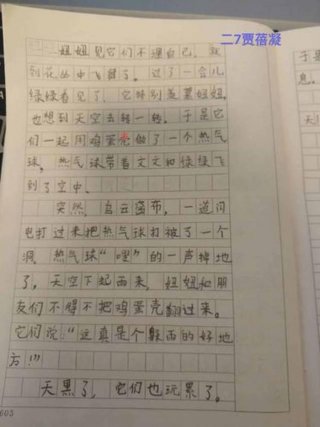 二7贾蓓凝
妞妞见它们不理自己，就
到花丛中飞舞了。过了一会儿
绿绿看见了，它特别羡慕妞妞，
也想到天空去转一转。于是它
们一起用鸡蛋壳做了一个热气
球。热气球带着文文和绿绿飞
到了空中。
突然，乌云密布，一道闪
电打过来把热气球打破了一个
洞，热气球“哩”的一声掉地
了，天空下起雨来，妞妞和朋
友们不得不把鸡蛋壳翻过来。
它们说：“这真是个躲雨的好地
方！”
天黑了，它们也玩累了。
于是
息。
605